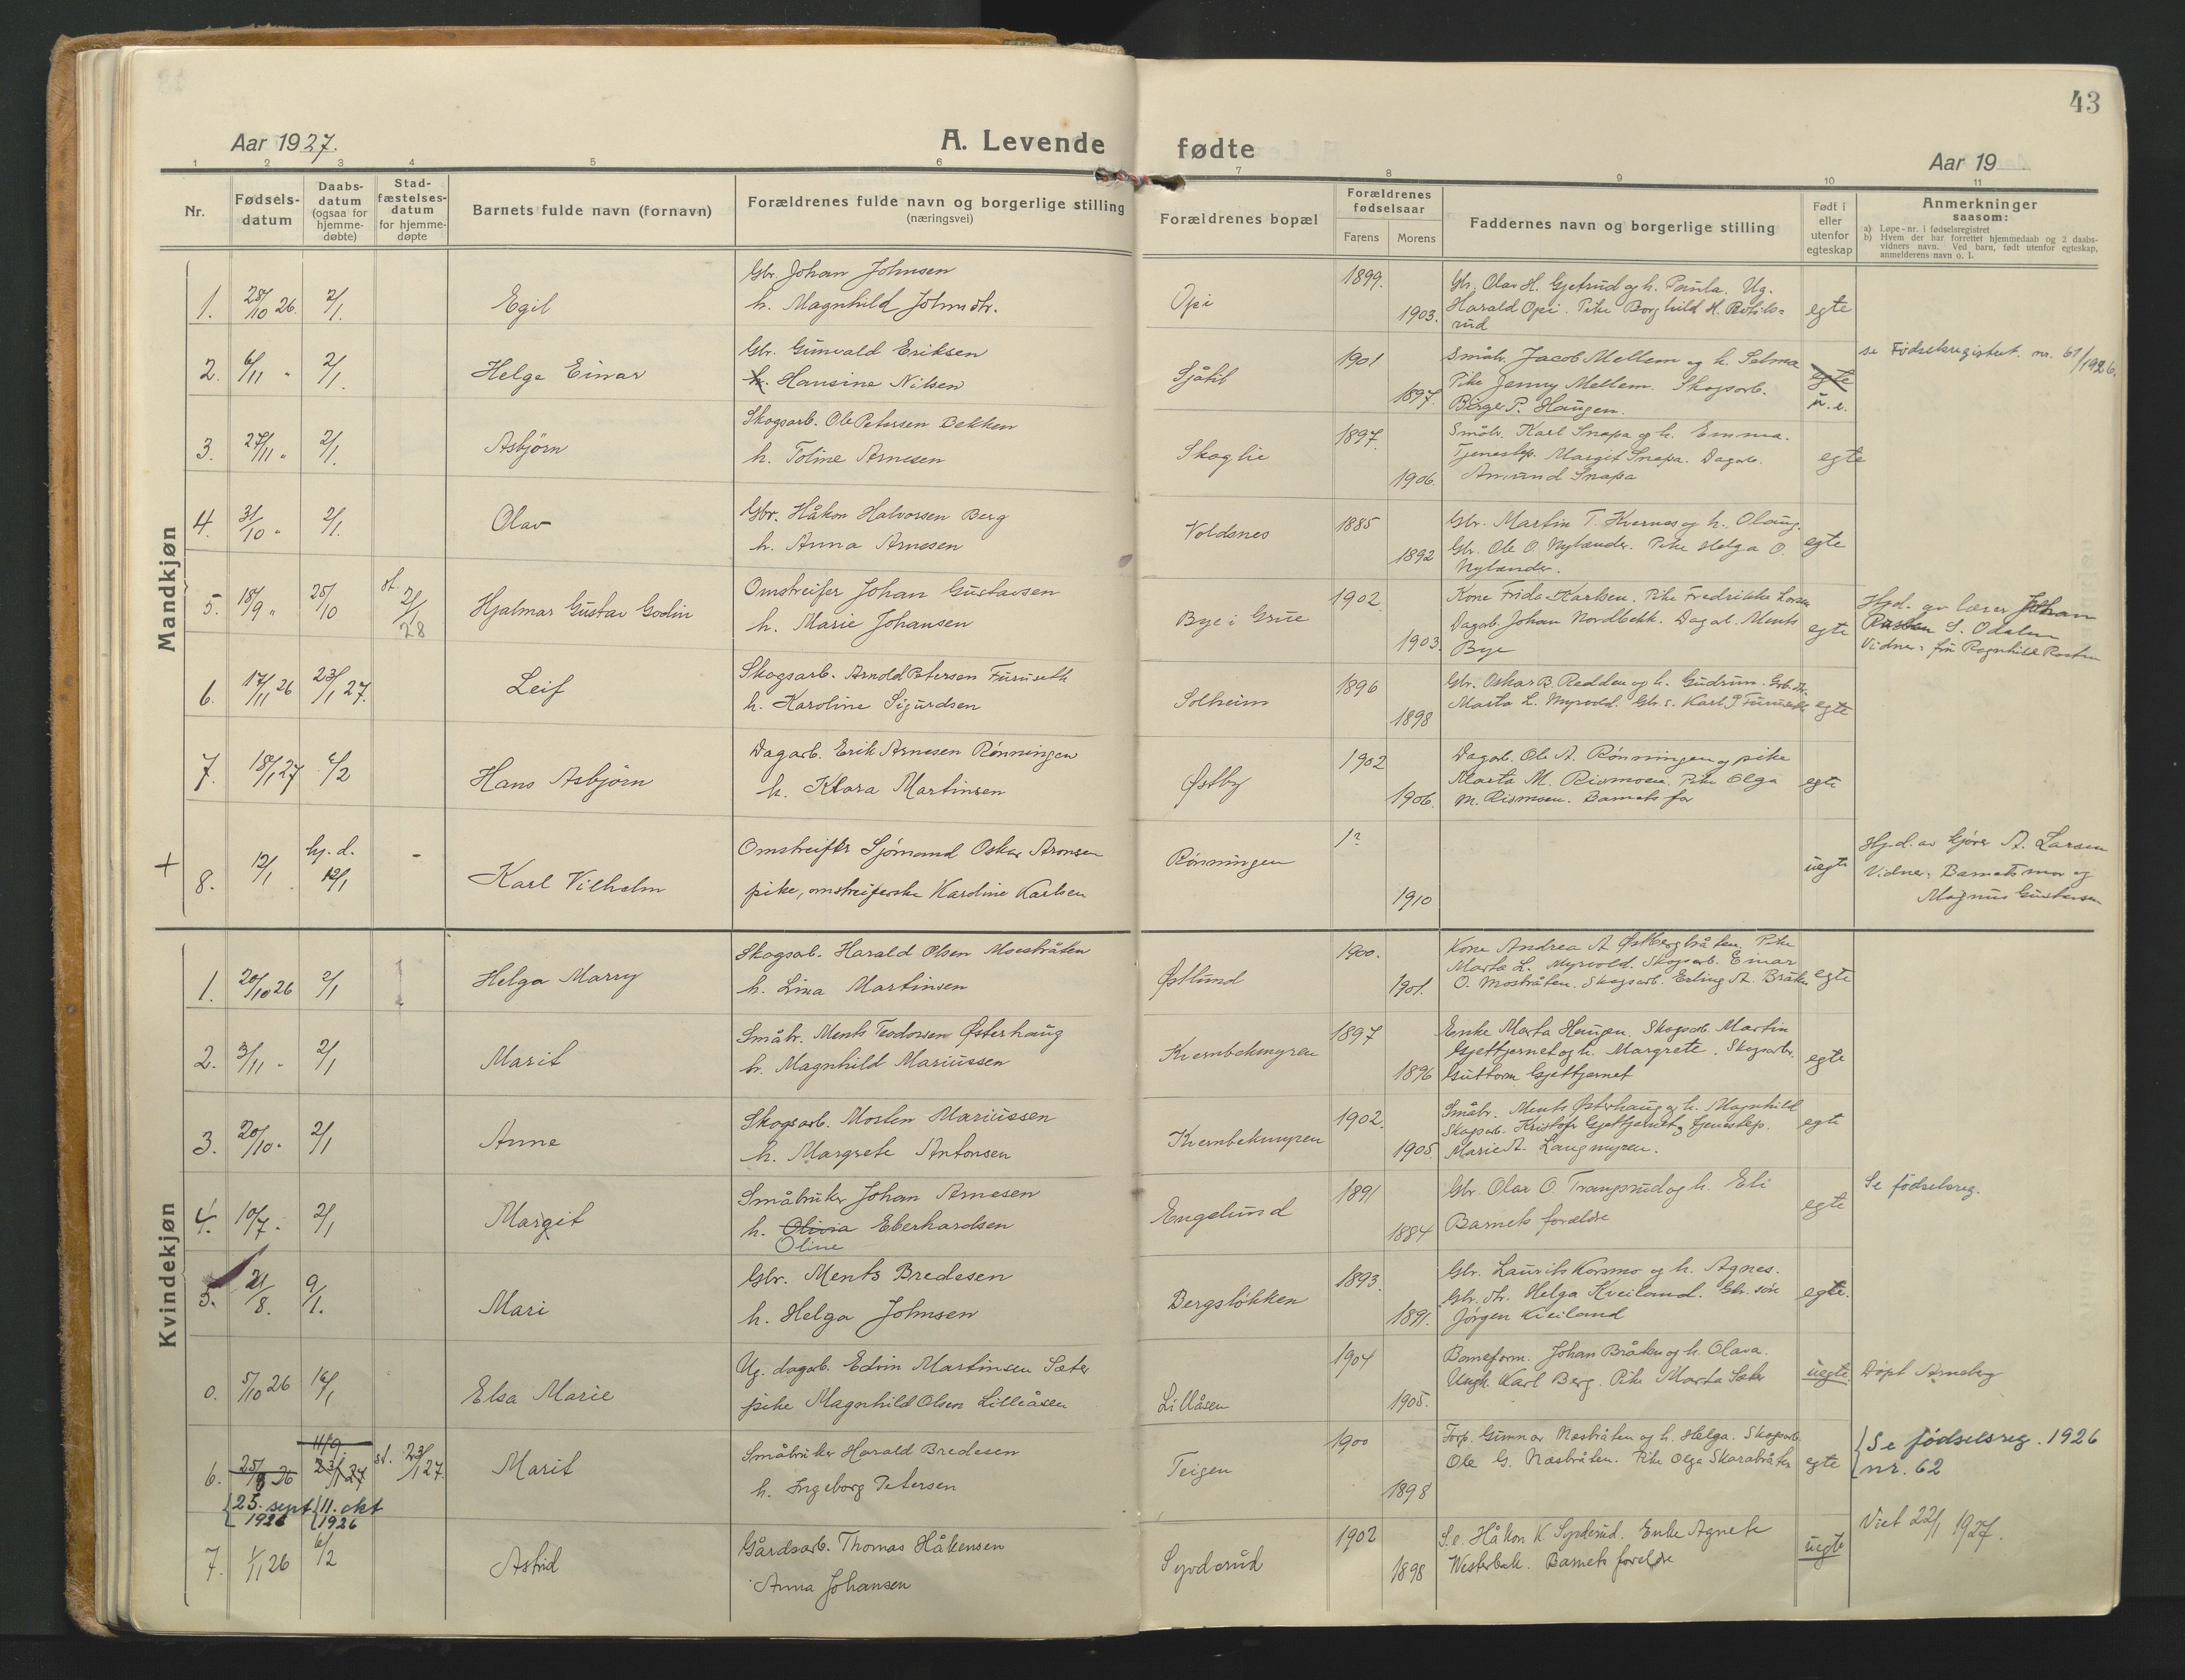 43
Aar 1927.
A. Levende
fødte
Aar 19
1 2 3 4 5 6 7 8 9 10 11
Nr.
Fødsels-
datum
Daabs-
datum
(ogsaa for
hjemme-
døbte)
Stad-
fæstelses-
datum
for hjemme-
døpte
Barnets fulde navn (fornavn)
Forældrenes fulde navn og borgerlige stilling
(næringsvei)
Forældrenes bopæl
Forældrenes
fødselsaar
Farens Morens
Faddernes navn og borgerlige stilling
Født i
eller
utenfor
egteskap
Anmerkninger
saasom:
a) Løpe-nr. i fødselsregistret
b) Hvem der har forrettet hjemmedaab og 2 daabs-
vidners navn. Ved barn, født utenfor egteskap,
anmelderens navn o. l.
Mandkjøn
1. 25/10 26. 2/1. Egil
Gbr. Johan Johnsen
h. Magnhild Johnsdtr.
Opi
1899.
1903.
Gbr. Olav H. Gjetrud og h. Paula. Ug.
Harald Opi. Pike Borghild H.
rud
egte
2. 6/11 " 2/1. Helge Einar
Gbr. Gunvald Eriksen
h. Hansine Nilsen
Sjåtil
1901
1897.
Småbr. Jacob Mellem og h. Selma
Pike Jenny Mellem. Skogsarb.
Birger P. Haugen.
egte
u. e.
se Fødselsregistret. nr. 61/1926.
3. 27/11 " 2/1. Asbjörn
Skogsarb. Ole Petersen Bekken
h. Toline Arnesen
Skoglie
1897.
1906.
Småbr. Karl Snapa og h. Emma.
Tjenestep. Margit Snapa. Dagarb.
Amund Snapa
egte
4. 31/10 " 2/1. Olav
Gbr. Håkon Halvorsen Berg
h. Anna Arnesen
Voldsnes
1885
1892
Gbr. Martin T. Kvernes og h. Olaug.
Gbr. Ole O. Nylænder. Pike Helga O.
Nylænder.
egte
5. 18/9 " 25/10 st. 2/1 28 Hjalmar Gustav Godin
Omstreifer Johan Gustavsen
h. Marie Johansen
Bye i Grue
1902.
1903.
Kone Frida Karlsen. Pike Fredrikke Larsen
Dagarb. Johan Nordbekk. Dagarb. Ments
Bye
egte
Hjd. av lærer Johan
S. Odalen
Vidner: fru Ragnhild
6. 17/11 26 23/1 27. Leif
Skogsarb. Arnold Petersen Furuseth
h. Karoline Sigurdsen
Solheim
1896
1898
Gbr. Oskar B. Redden og h. Gudrun. Gbr. dtr.
Marta L. Myrvold. Gbr. s. Karl P Furuseth
egte
7. 18/1 27 6/2 Hans Asbjörn
Dagarb. Erik Arnesen Rönningen
h. Klara Martinsen
Østby
1902
1906.
Dagarb. Ole A. Rönningen og pike
Marta M. Rismoen. Pike Olga
M. Rismoen. Barnets far
egte
+ 8. 12/1 hj. d. 12/1 - Karl Vilhelm
Omstreifer Sjömand Oskar Aronsen
pike, omstreiferske Karoline Karlsen
Rönningen
1?
1910
uegte
Hj.d. av Gjörer A. Larsen
Vidner: Barnets mor og
Magnus Gustavsen
Kvindekjøn
1. 20/10 26 2/1 Helga Marry
Skogsarb. Harald Olsen Mosstråten
h. Lina Martinsen
Østlund
1900.
1901.
Kone Andrea A Østbergbråten. Pike
Marta L. Myrvold. Skogsarb. Einar
O. Mostråten. Skogsarb. Erling A. Bråten
egte
2. 3/11 - 2/1 Marit
Småbr. Ments Teodorsen Østerhaug
h. Magnhild Mariussen
Kvernbekmyren
1897
1896
Enke Marta Haugen. Skogsarb Martin
Gjettjernet og h. Margrete. Skogsarbr.
Guttorm Gjettjernet
egte
3. 20/10 " 2/1 Anne
Skogsarb. Morten Mariussen
h. Margrete Antonsen
Kvernbekmyren
1902.
1905.
Småbr. Ments Østerhaug og h. Magnhild
Skogsarb. Kristofr Gjettjernet og tjenestep.
Marie A. Langmyren.
egte
4. 10/7 " 2/1 Margit
Småbruker Johan Arnesen
h. Olivia Eberhardsen
Oline
Engelund
1891
1884
Gbr. Olav O. Trangsrud og h. Eli
Barnets forældre
egte
Se födselsreg.
5. 21/8. 9/1. Mari
Gbr. Ments Bredesen
h. Helga Johnsen
Bergslökken
1893.
1891.
Gbr. Laurits Korsmo og h. Agnes.
Gbr. dtr. Helga Kveiland. Gbr. sön
Jörgen Kveiland
egte.
0. 5/10 26 16/1 Elsa Marie
Ug. dagarb. Edvin Martinsen Sæter
pike Magnhild Olsen Lilleåsen
Lillåsen
1904
1905.
Baneform. Johan Bråten og h. Olava.
Ungk. Karl Berg. Pike Marta Sæter
uegte
Döpt Arneberg
6. 25/8 26 11/9. 23/1 27 st. 23/1 27. Marit
{25. sept {11. okt
1926 1926
Småbruker Harald Bredesen
h. Ingeborg Petersen
Teigen
1900
1898
Forp. Gunnar Næsbråten og h. Helga. Skogsarb
Ole G. Næsbråten. Pike Olga Skarabråten
egte
{Se födselsreg. 1926
nr. 62
7. 1/11 26 6/2 Astrid
Gårdsarb. Thomas Håkensen
Anna Johansen
Syvdsrud
1902
1898
S.e. Håkon K Syvdsrud. Enke Agnete
Westerbak. Barnets foreldre
uegte
Viet 22/1 1927.